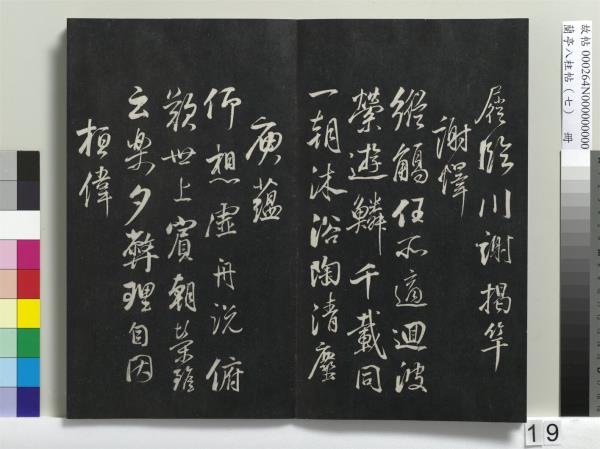 屣臨川謝揭竿
謝繹
縱觴任所適迴波
縈遊鱗千載同
一朝沐浴陶清塵
庾蘊
仰想虛舟說俯
歎世上賓朝榮雖
云樂夕斃理自因
桓偉
故帖 000264N000000000
蘭亭八柱帖(七) 冊
19